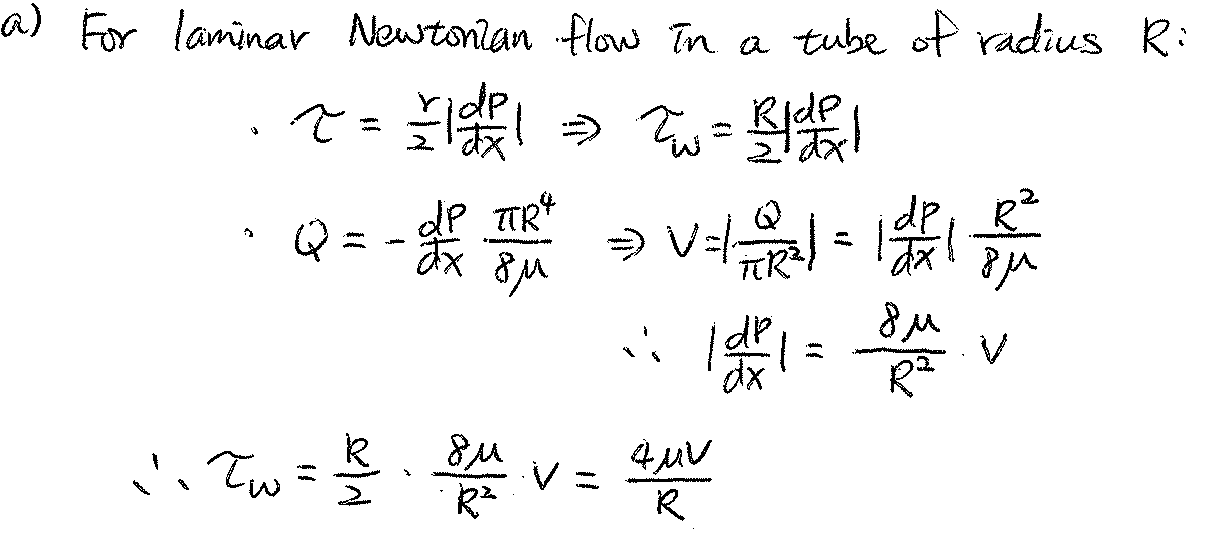 a) For laminar Newtonian flow in a tube of radius R:
· τ = r/2 |dP/dx| ⇒ τ_w = R/2 |dP/dx|
· Q = - dP/dx πR⁴/8μ ⇒ V = |Q/πR²| = |dP/dx| R²/8μ
∴ |dP/dx| = 8μ/R² · V
∴ τ_w = R/2 · 8μ/R² · V = 4μV/R